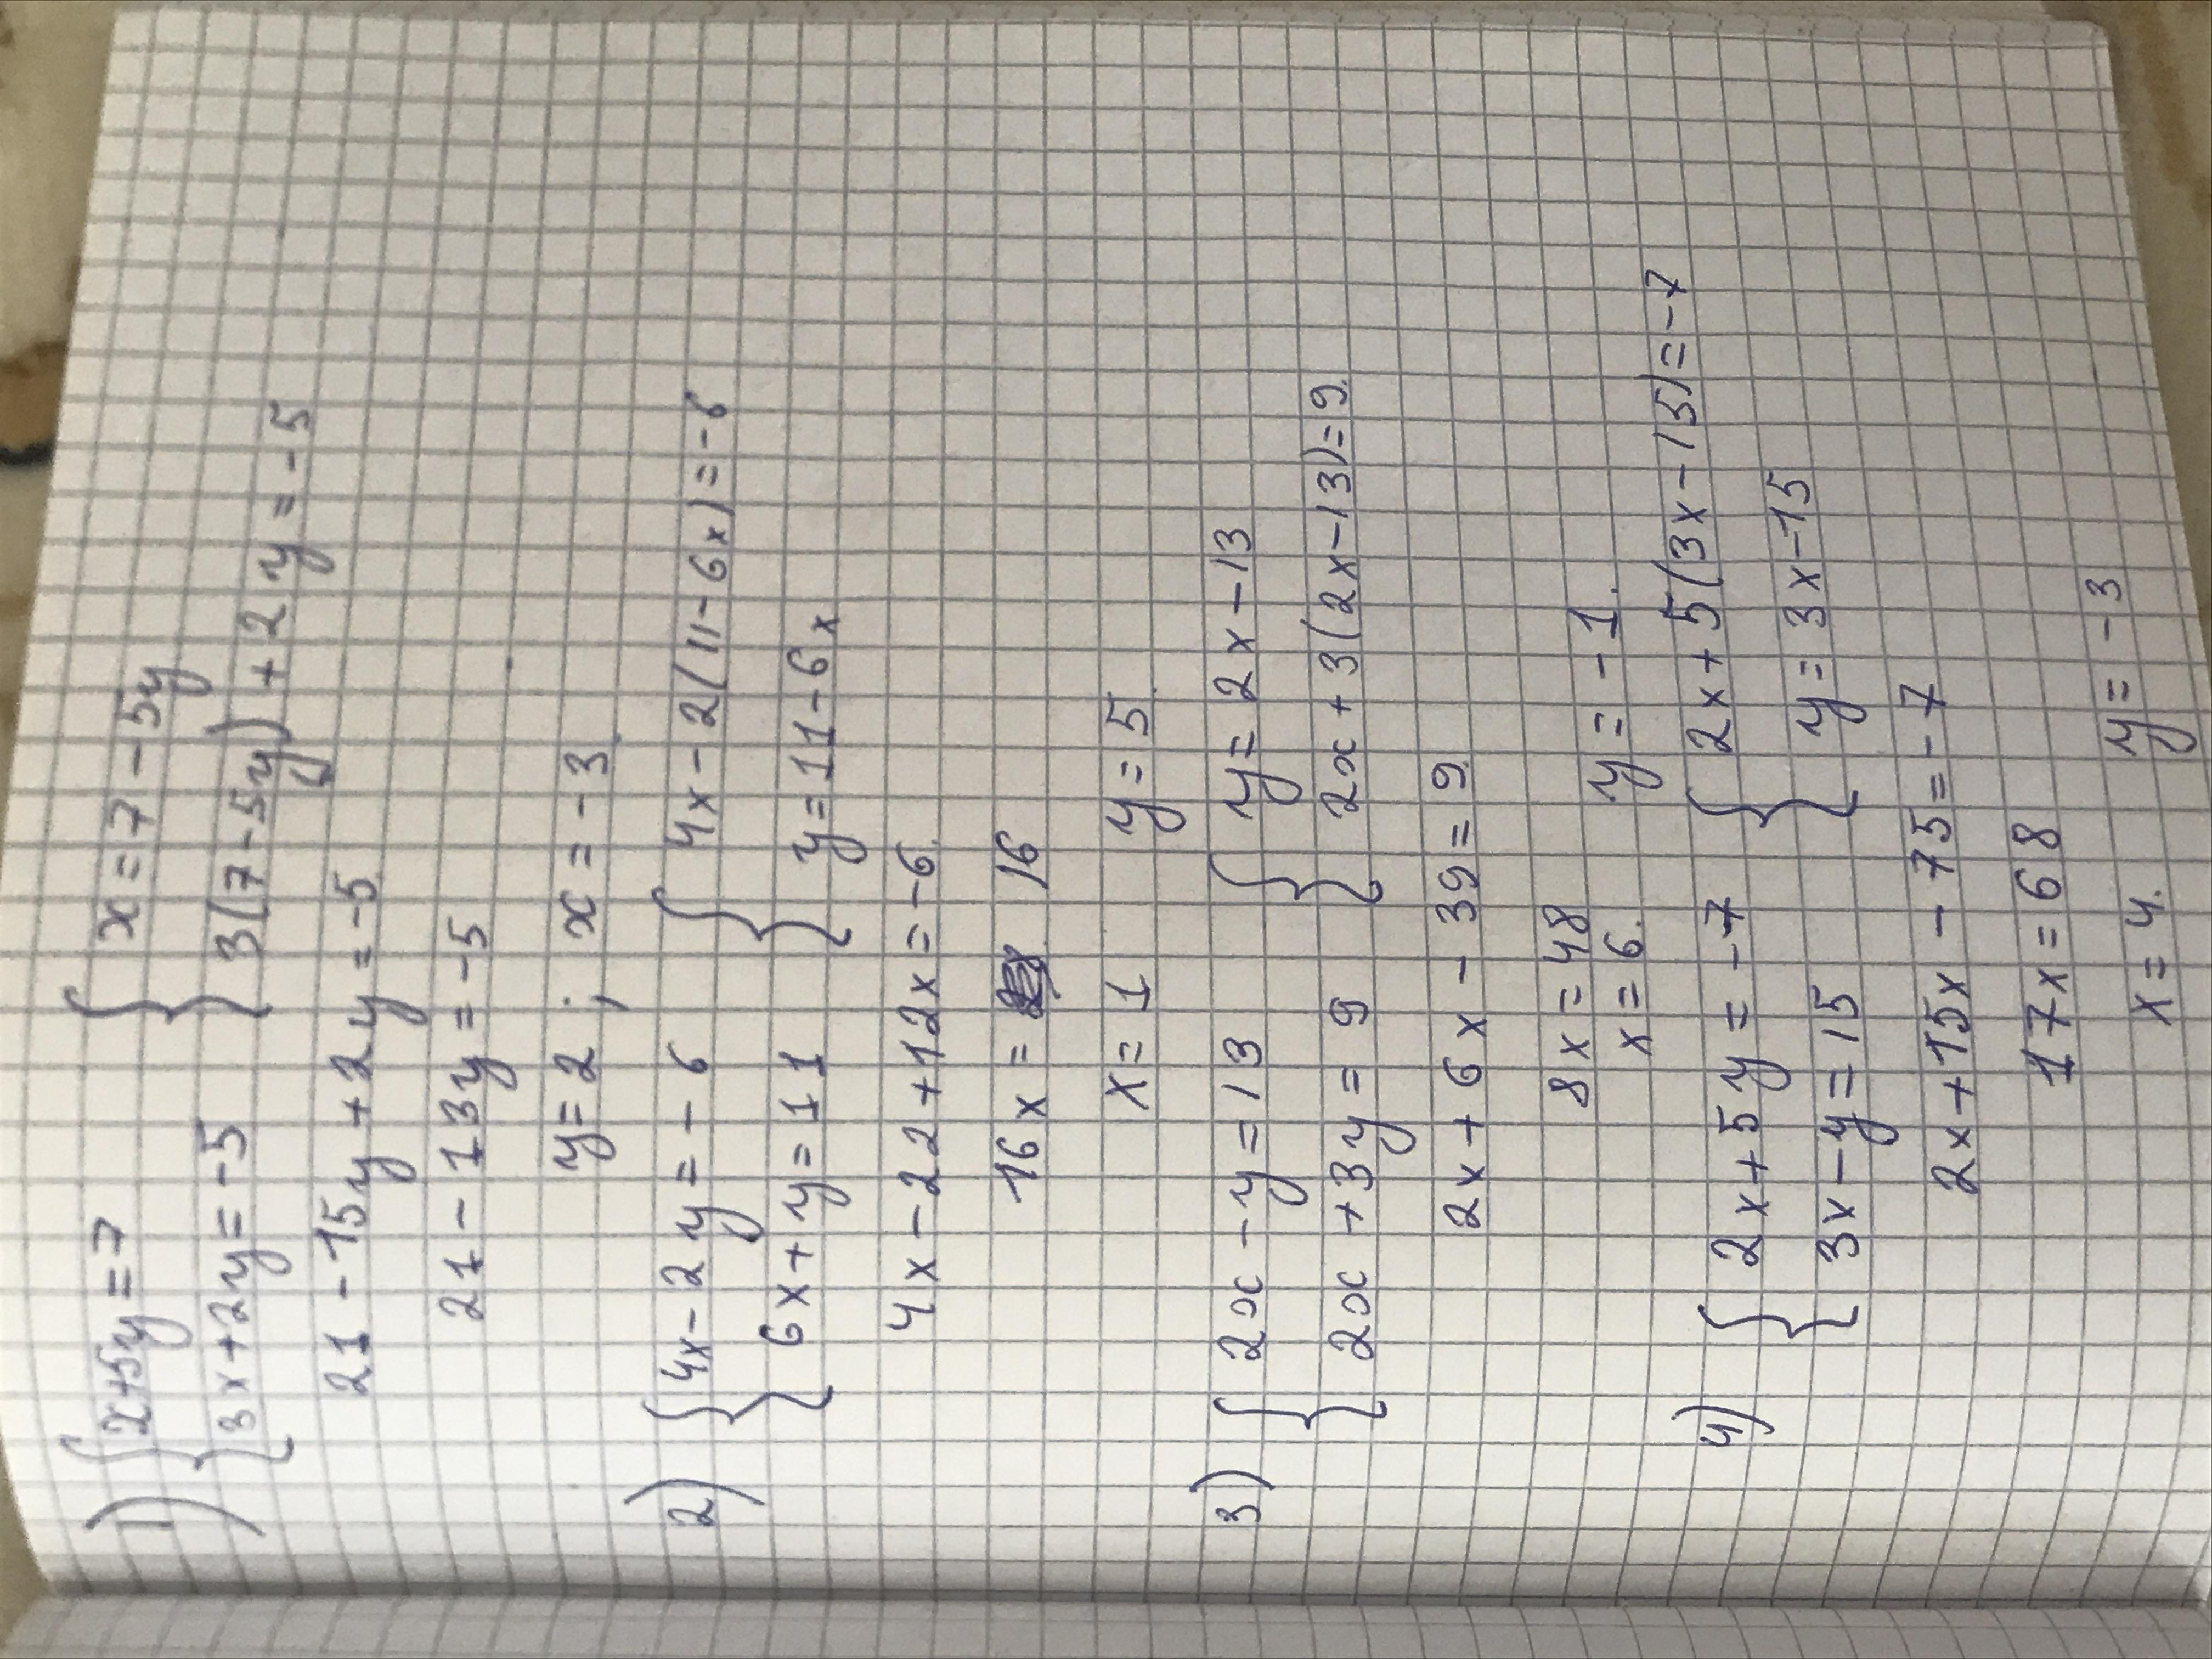 1) { x+5y=7 { x=7-5y
{ 3x+2y=-5 { 3(7-5y)+2y=-5
21-15y+2y=-5
21-13y=-5
y=2; x=-3.
2) { 4x-2y=-6 { 4x-2(11-6x)=-6
{ 6x+y=11 { y=11-6x
4x-22+12x=-6.
16x= 16
x=1 y=5.
3) { 2x-y=13 { y=2x-13
{ 2x+3y=9 { 2x+3(2x-13)=9.
2x+6x-39=9.
8x=48
x=6. y=-1.
4) { 2x+5y=-7 { 2x+5(3x-15)=-7
{ 3x-y=15 { y=3x-15
2x+15x-75=-7
17x=68
x=4. y=-3